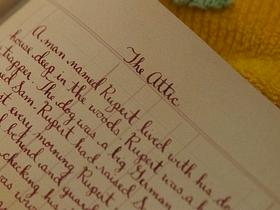 The Attic
A man named Rupert lived with his do
house deep in the woods. Rupert was a h
trapper. The dog was a big German
ed Sam. Rupert had raised S
st every morning Rupert
friend and guard
checking his
was wro